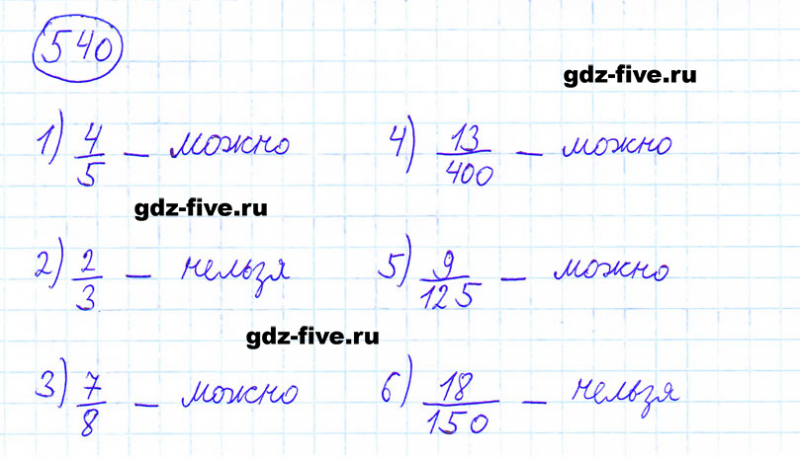 540
gdz-five.ru
1) 4/5 — можно 4) 13/400 — можно
gdz-five.ru
2) 2/3 — нельзя 5) 9/125 — можно
gdz-five.ru
3) 7/8 — можно 6) 18/150 — нельзя